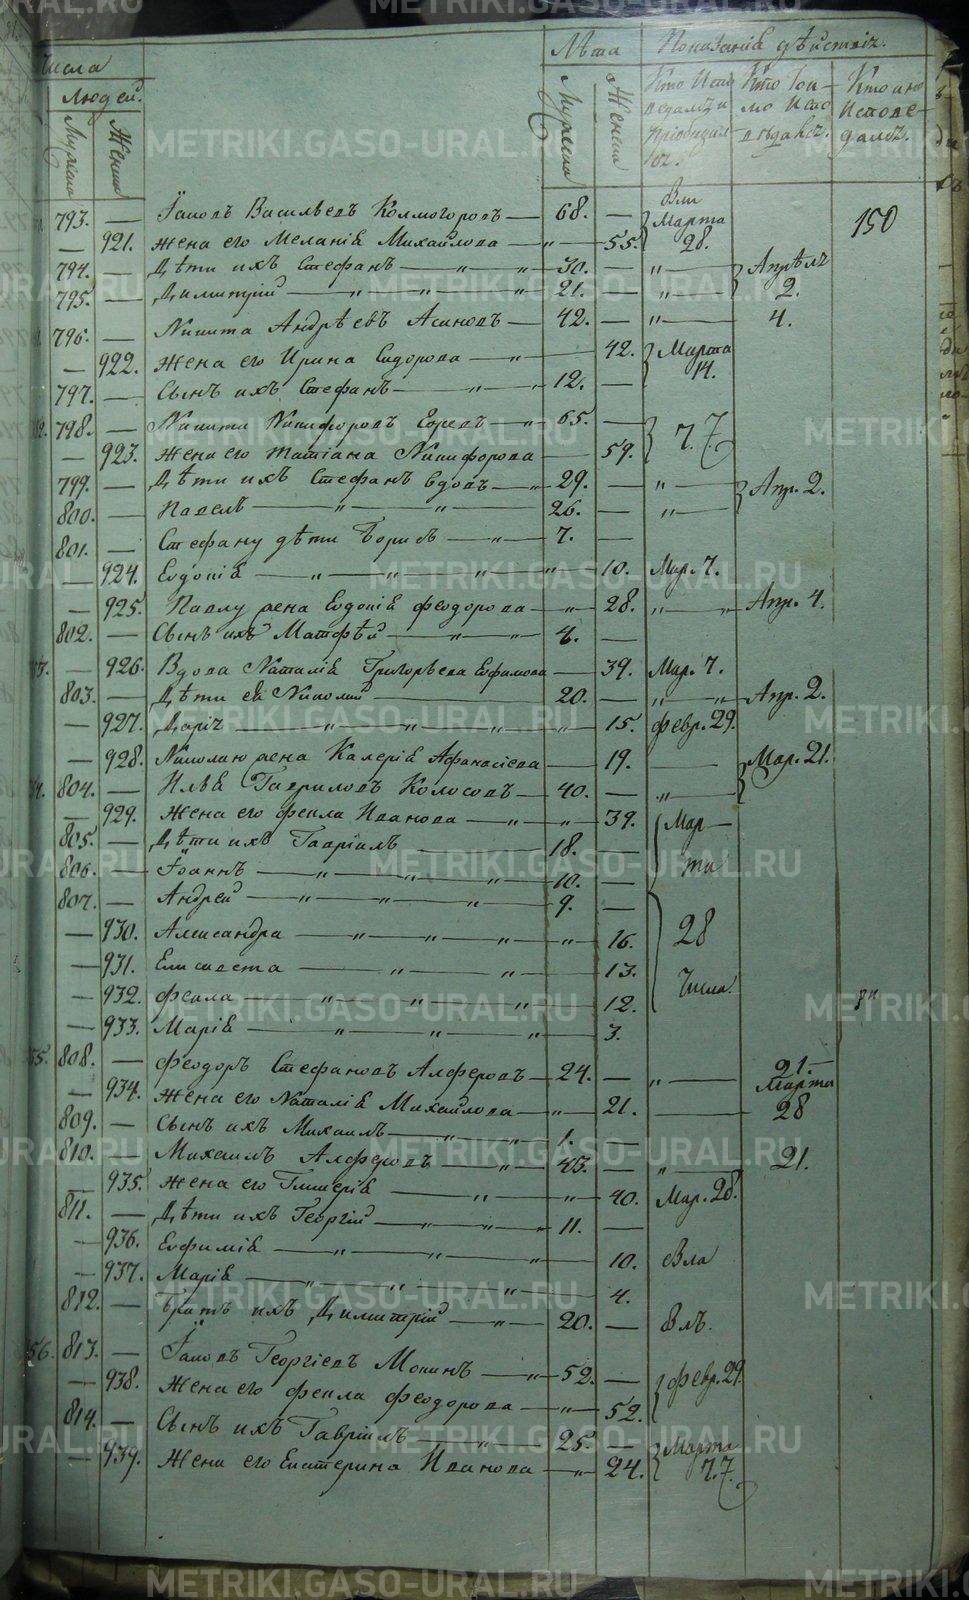 Числа Лѣта Показаніе дѣйствіѧ.
Людей. Мужеска Женска Кто Испо- Кто Токъ- Кто не
Мужска Женска ведался и мо Испо- Исповѣ-
пріобщил- вѣдался. дался.
ся.
793. — Іаковъ Васильевъ Колмогоровъ — 68. — Марта 150
— 921. жена его Меланія Михайлова — " — 55. 28.
794. — Дѣти ихъ Стефанъ — " — " — 30. — " — Апрѣлѧ
795. — Димитрій — " — " — 21. — " — 2.
796. — Никита Андрѣевъ Асиновъ — 42. — " — 4.
— 922. жена его Ирина Сидорова — " — 42. Марта
797. — Сынъ ихъ Стефанъ — " — 12. — 14.
798. — Никита Никифоровъ — " — 65. — 7.
— 923. жена его Татіана Никифорова — 59.
799. — Дѣти ихъ Стефанъ вдовъ — " — 29. — " — Апр. 2.
800. — Павелъ — " — " — 26. — " —
801. — Стефану дѣти Борисъ — " — 7. —
— 924. Евдокія — " — " — " — " — 10. Мар. 7.
— 925. Павлу жена Евдокія Феодорова — " — 28. " — " Апр. 4.
802. — Сынъ ихъ Матфѣй — " — " — 4. —
— 926. Вдова Наталія Григорьева Ефимова — 39. Мар. 7.
803. — Дѣти ея Николай — 20. — " — " — Апр. 2.
— 927. Дарія — " — " — " — " — 15. Февр. 29.
— 928. Николаю жена Калерія Афанасіева — 19. — Мар. 21.
804. — Илья Гавриловъ Колосовъ — 40. — " —
— 929. жена его Фекла Иванова — " — " — 39. Мар-
805. — Дѣти ихъ Гавріилъ — 18. —
806. — Іоаннъ — " — " — " — 10. — та
807. — Андрей — " — " — " — 9. —
— 930. Александра — " — " — " — " — 16. 28
— 931. Елисавета — " — " — 13.
— 932. Фекла — " — " — " — 12. Числа.
— 933. Марія — " — " — " — 3.
55. 808. — Феодоръ Стефановъ Алферовъ — 24. — " — 21.
— 934. жена его Наталія Михайлова — " — 21. — Марта 28
809. — Сынъ ихъ Михаилъ — " — " — 1. —
810. — Михаилъ Алферовъ — " — 45. — " — 21.
— 935. жена его Гликерія — " — " — 40. Мар. 28.
811. — Дѣти ихъ Георгій — " — " — 11. —
— 936. Евфимія — " — " — 10.
— 937. Марія — " — " — " — 4.
812. — Братъ ихъ Димитрій — " — 20. —
56. 813. — Іаковъ Георгіевъ Мокинъ — " — 52. — Февр. 29.
— 938. жена его Фекла Феодорова — " — 52.
814. — Сынъ ихъ Гавріилъ — " — 25. — Марта
— 939. жена его Екатерина Иванова — " — 24. 7.
METRIKI.GASO-URAL.RU